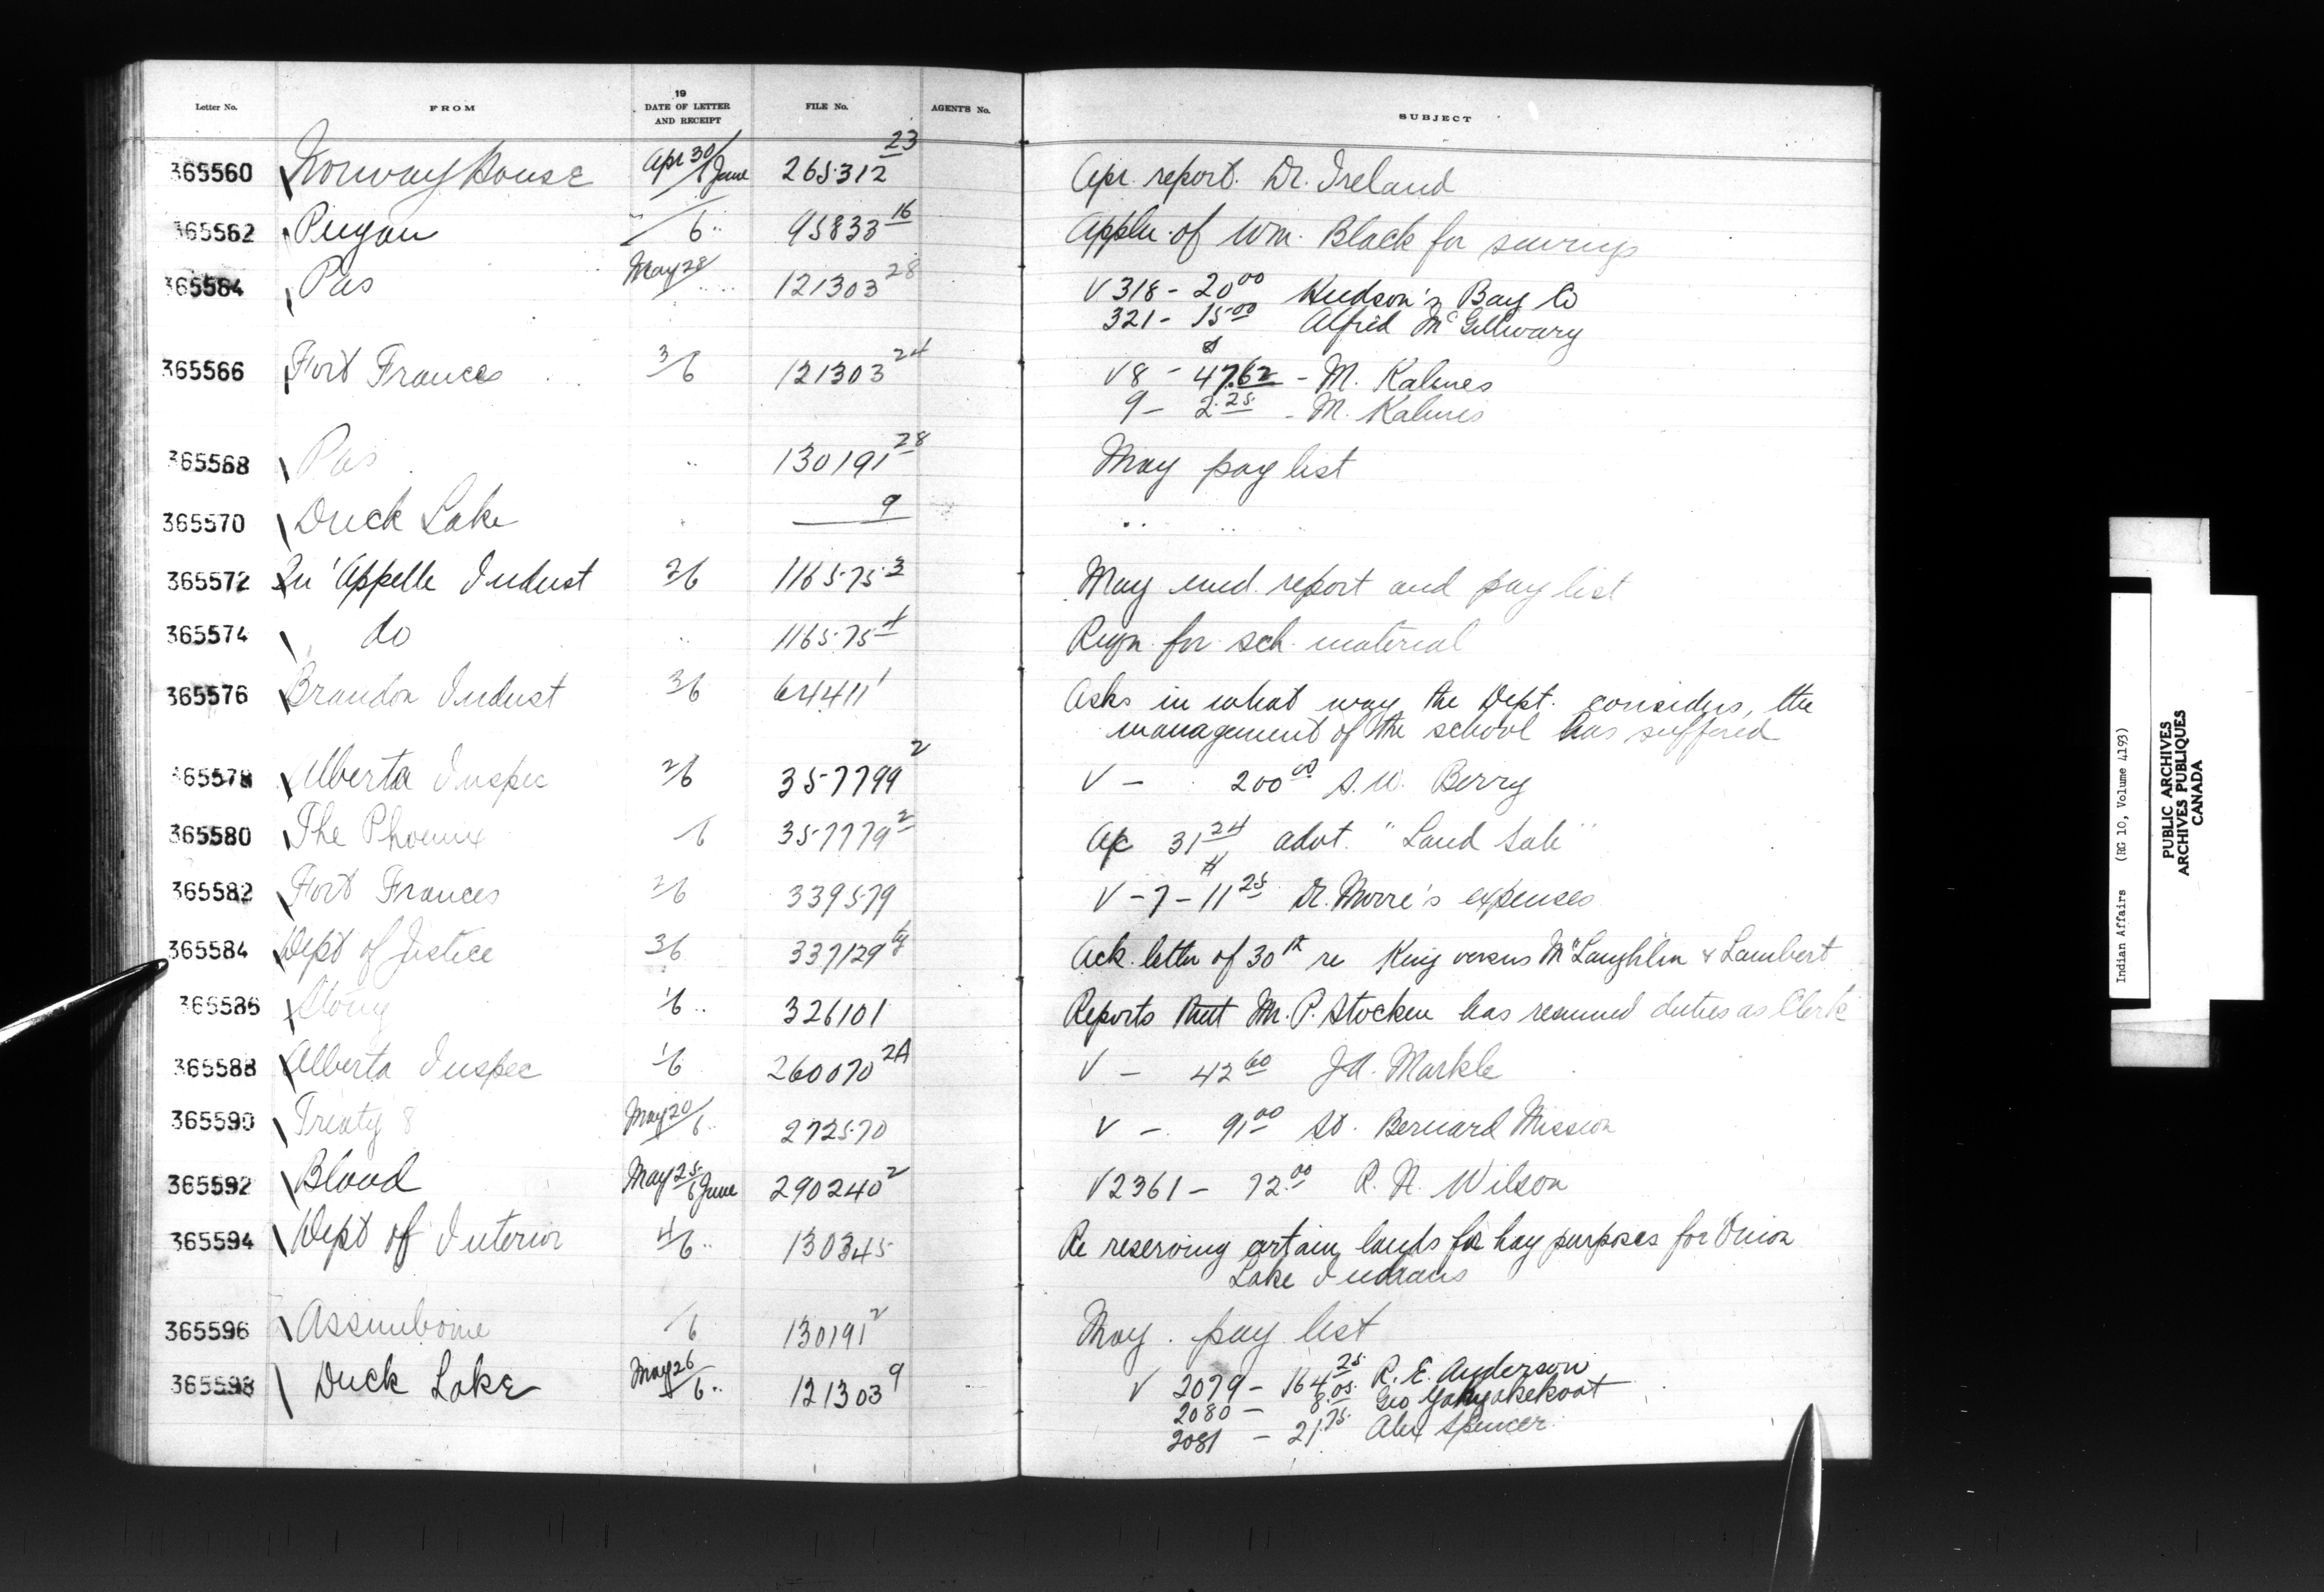 Letter No. FROM 19 DATE OF LETTER AND RECEIPT FILE No. AGENT'S No. SUBJECT
365560 Norway House Apr 30/6 June 265312 23 Apr. report. Dr. Ireland
365562 Piegan /6 " 95833 16 Appln. of Wm. Black for savings
365564 Pas May 28/ " 121303 28 V 318 - 20 00 Hudson's Bay Co
321 - 15 00 Alfred McGillivary
365566 Fort Frances 3/6 121303 24 V 8 - 47.62 - M. Kalmes
9 - 2.25 - M. Kalmes
365568 Pas " 130191 28 May pay list
365570 Duck Lake " 9 " "
365572 Qu'Appelle Indust 2/6 116575 3 May emd. report and pay list
365574 do " 116575 4 Reqn. for sch. material
365576 Brandon Indust 3/6 64411 1 Asks in what way the Dept. considers, the
management of the school has suffered
365578 Alberta Inspec 2/6 357799 2 V - 200 00 S. W. Berry
365580 The Phoenix /6 357779 2 A/c 31 24 advt. "Land Sale"
365582 Fort Frances 2/6 339579 V - 7 - 11 25 Dr. Morre's expenses
365584 Dept of Justice 3/6 337129 Ack. letter of 30th re King versus McLaughlin & Lambert
365586 Stony 1/6 " 326101 Reports that Mr. P. Stocken has resumed duties as Clerk
365588 Alberta Inspec 1/6 260070 2A V - 42 60 J.A. Markle
365590 Treaty 8 May 20/6 " 272570 V - 91 00 St. Bernard Mission
365592 Blood May 25/6 June 290240 2 V 2361 - 72.00 R. N. Wilson
365594 Dept of Interior 4/6 " 130345 Re reserving certain lands for hay purposes for Onion
Lake Indians
365596 Assiniboine /6 130191 2 May. pay list
365598 Duck Lake May 26/6 " 121303 9 V 2079 - 164 25 R. E. Anderson
2080 - 8.05 Geo
2081 - 21.75 Alex Spencer
Indian Affairs (RG 10, Volume 4193)
PUBLIC ARCHIVES
ARCHIVES PUBLIQUES
CANADA